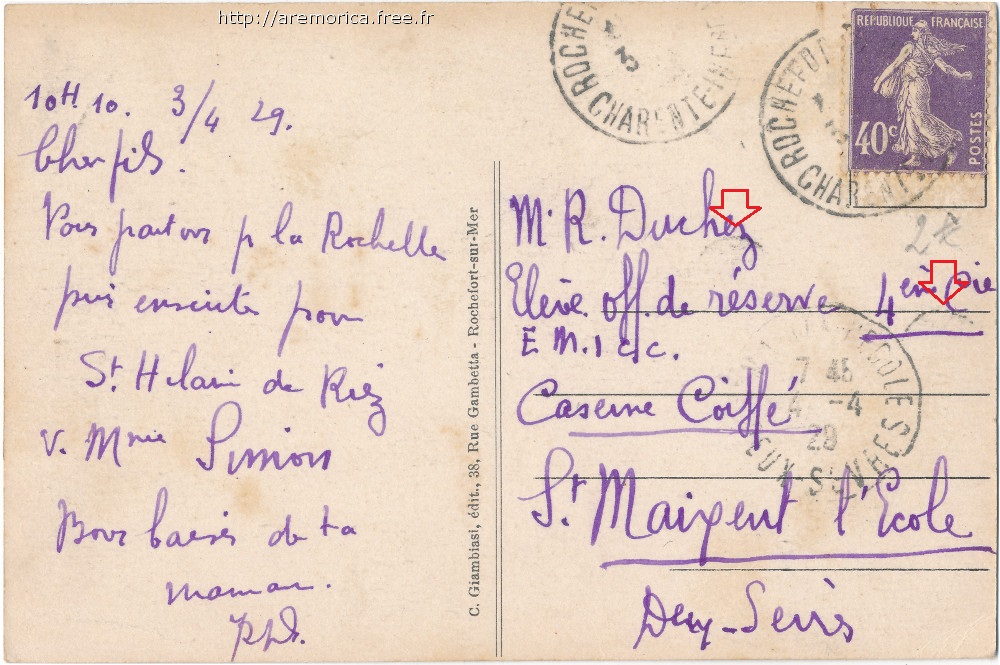 http://aremorica.free.fr
10H10. 3/4 29.
Cher fils.
Nous partons p la Rochelle
puis ensuite pour
St Hilaire de Riez
v. Mme Simon
Bons baisers de ta
maman.
ROCHEFORT
CHARENTE-INFRE
ROCHEFORT
CHARENTE
REPUBLIQUE FRANÇAISE
40c
POSTES
2€
M. R. Duchez
Elève. off. de réserve 4ème Cie
E M. I c.c.
Caserne Coiffé
St Maixent l'Ecole
Deux-Sèvres
L'ECOLE
7 45
4 -4
29
DEUX-SEVRES
C. Giambiasi, édit., 38, Rue Gambetta - Rochefort-sur-Mer